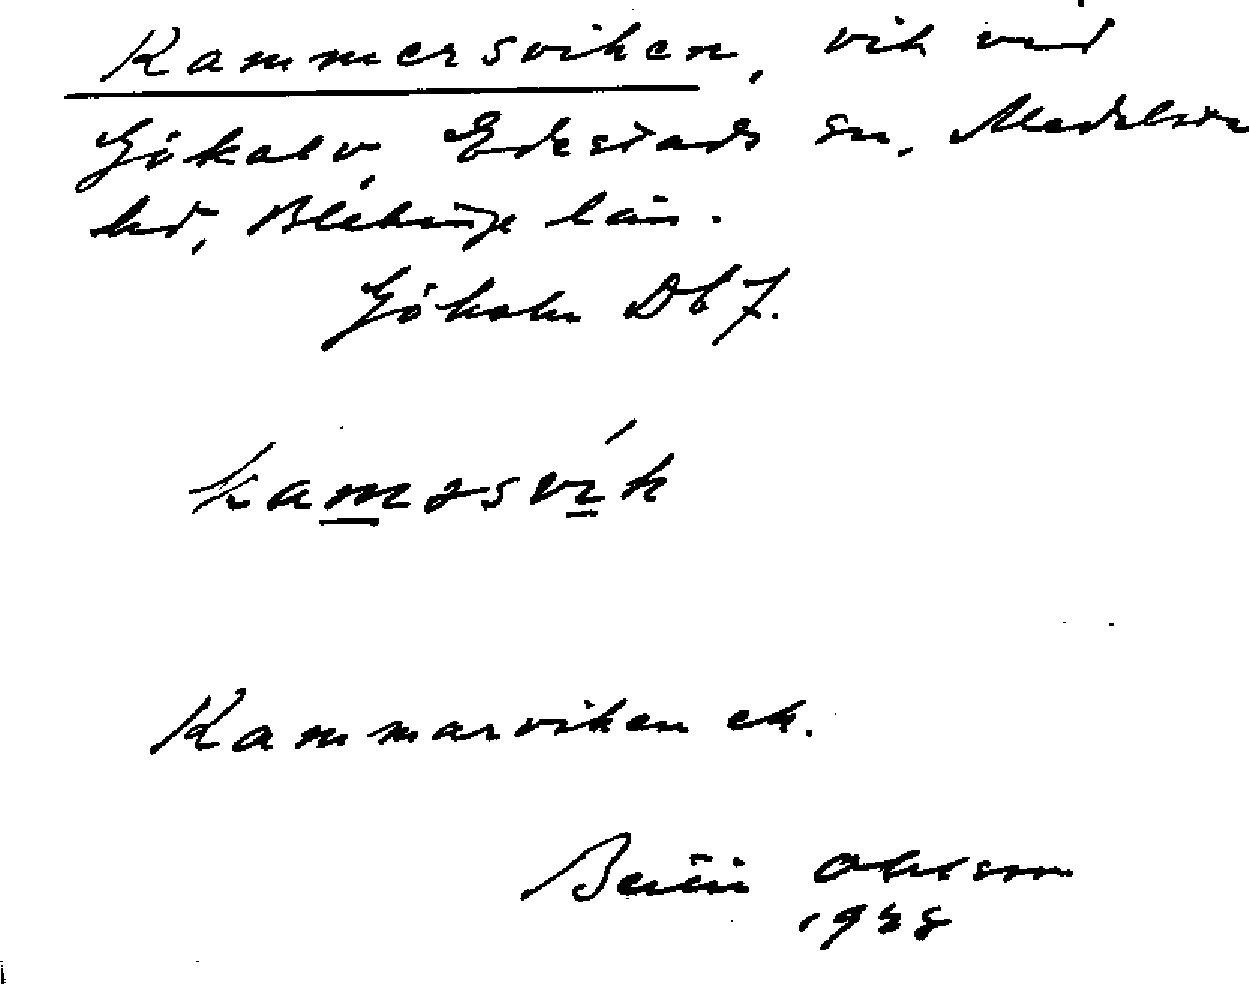 Kammersviken, vik vid
Gökalv, Edestads sn, Medelsta
hd, Blekinge län.
Gökalv Db 7.
kamərsvík
Kammarviken ek.
Bertil Ohlsson